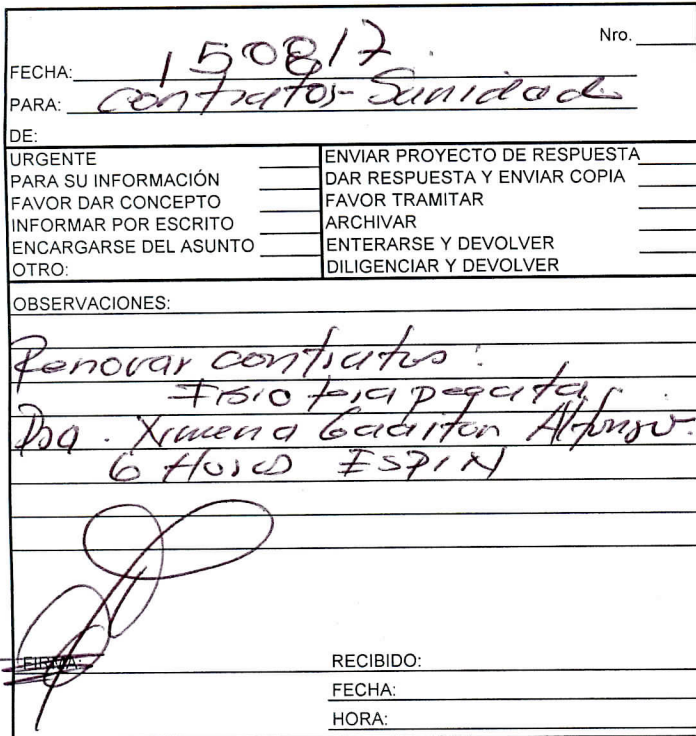 Nro.
FECHA: 150817.
PARA: Contratos-Sanidad
DE:
URGENTE
PARA SU INFORMACIÓN
FAVOR DAR CONCEPTO
INFORMAR POR ESCRITO
ENCARGARSE DEL ASUNTO
OTRO:
ENVIAR PROYECTO DE RESPUESTA
DAR RESPUESTA Y ENVIAR COPIA
FAVOR TRAMITAR
ARCHIVAR
ENTERARSE Y DEVOLVER
DILIGENCIAR Y DEVOLVER
OBSERVACIONES:
Renovar contratos:
Fisioterapeuta
Dra. Ximena Gaitan Alfonso.
6 Horas ESPIN
FIRMA:
RECIBIDO:
FECHA:
HORA: